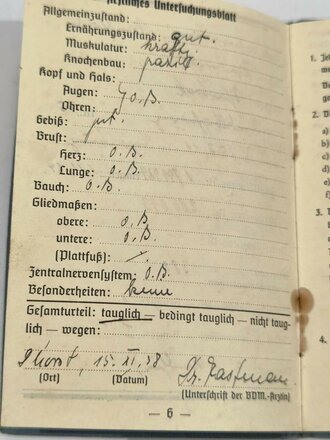 ärztliches Untersuchungsblatt
Allgemeinzustand:
Ernährungszustand: gut.
Muskulatur: kräftig
Knochenbau:
Kopf und Hals:
Augen: o.B.
Ohren:
Gebiß: gut.
Brust:
Herz: o.B.
Lunge: o.B.
Bauch: o.B.
Gliedmaßen:
obere: o.B.
untere: o.B.
(Plattfuß):
Zentralnervensystem: o.B.
Besonderheiten: keine
Gesamturteil: tauglich — bedingt tauglich — nicht taug-
lich — wegen:
15. II. 38 Dr.
(Ort) (Datum) (Unterschrift der BDM.-Ärztin)
— 6 —
1.
a)
b)
c)
d)
e)
2.
a)
b)
c)
d)
3.
4.